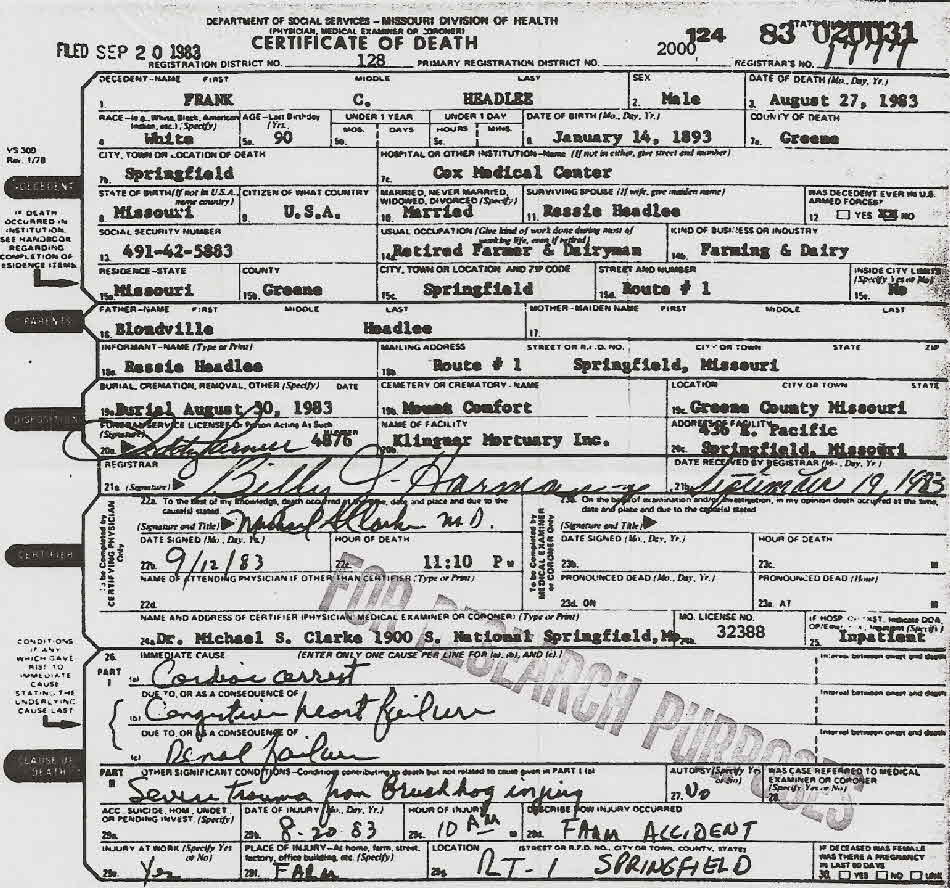 DEPARTMENT OF SOCIAL SERVICES – MISSOURI DIVISION OF HEALTH
(PHYSICIAN, MEDICAL EXAMINER OR CORONER)
CERTIFICATE OF DEATH
FILED SEP 20 1983
124
2000
83 020031
REGISTRATION DISTRICT NO. 128 PRIMARY REGISTRATION DISTRICT NO. REGISTRAR'S NO.
DECEDENT–NAME FIRST MIDDLE LAST SEX DATE OF DEATH (Mo., Day, Yr.)
1. FRANK C. HEADLEE 2. Male 3. August 27, 1983
RACE–(e.g., White, Black, American Indian, etc.) (Specify) AGE–Last Birthday (Yrs.) UNDER 1 YEAR UNDER 1 DAY DATE OF BIRTH (Mo., Day, Yr.) COUNTY OF DEATH
MOS. DAYS HOURS MINS.
4. White 5a. 90 5b. 5c. 6. January 14, 1893 7a. Greene
VS 300
Rev. 1/78
CITY, TOWN OR LOCATION OF DEATH HOSPITAL OR OTHER INSTITUTION–Name (If not in either, give street and number)
7b. Springfield 7c. Cox Medical Center
DECEDENT
STATE OF BIRTH (If not in U.S.A., name country) CITIZEN OF WHAT COUNTRY MARRIED, NEVER MARRIED, WIDOWED, DIVORCED (Specify) SURVIVING SPOUSE (If wife, give maiden name) WAS DECEDENT EVER IN U.S. ARMED FORCES?
8. Missouri 9. U.S.A. 10. Married 11. Ressie Headlee 12. YES NO
IF DEATH OCCURRED IN INSTITUTION, SEE HANDBOOK REGARDING COMPLETION OF RESIDENCE ITEMS
SOCIAL SECURITY NUMBER USUAL OCCUPATION (Give kind of work done during most of working life, even if retired) KIND OF BUSINESS OR INDUSTRY
13. 491-42-5883 14a. Retired Farmer & Dairyman 14b. Farming & Dairy
RESIDENCE–STATE COUNTY CITY, TOWN OR LOCATION AND ZIP CODE STREET AND NUMBER INSIDE CITY LIMITS (Specify Yes or No)
15a. Missouri 15b. Greene 15c. Springfield 15d. Route # 1 15e. No
PARENTS
FATHER–NAME FIRST MIDDLE LAST MOTHER–MAIDEN NAME FIRST MIDDLE LAST
16. Blondville Headlee 17.
INFORMANT–NAME (Type or Print) MAILING ADDRESS STREET OR R.F.D. NO. CITY OR TOWN STATE ZIP
18a. Ressie Headlee 18b. Route # 1 Springfield, Missouri
BURIAL, CREMATION, REMOVAL, OTHER (Specify) DATE CEMETERY OR CREMATORY–NAME LOCATION CITY OR TOWN STATE
19a. Burial August 30, 1983 19b. Mount Comfort 19c. Greene County Missouri
DISPOSITION
FUNERAL SERVICE LICENSEE Or Person Acting As Such (Signature) NUMBER NAME OF FACILITY ADDRESS OF FACILITY 436 E. Pacific
20a. 4876 20b. Klingner Mortuary Inc. 20c. Springfield, Missouri
REGISTRAR DATE RECEIVED BY REGISTRAR (Mo., Day, Yr.)
21a. (Signature) Billy J. 21b. September 19, 1983
CERTIFIER
To be Completed by CERTIFYING PHYSICIAN Only
22a. To the best of my knowledge, death occurred at the time, date and place and due to the cause(s) stated.
(Signature and Title) Michael S Clarke M.D.
DATE SIGNED (Mo., Day, Yr.) HOUR OF DEATH
22b. 9/12/83 22c. 11:10 P M
NAME OF ATTENDING PHYSICIAN IF OTHER THAN CERTIFIER (Type or Print)
22d.
To be Completed by MEDICAL EXAMINER or CORONER Only
23a. On the basis of examination and/or investigation, in my opinion death occurred at the time, date and place and due to the cause(s) stated
(Signature and Title)
DATE SIGNED (Mo., Day, Yr.) HOUR OF DEATH
23b. 23c. M
PRONOUNCED DEAD (Mo., Day, Yr.) PRONOUNCED DEAD (Hour)
23d. ON 23e. AT M
NAME AND ADDRESS OF CERTIFIER (PHYSICIAN, MEDICAL EXAMINER OR CORONER) (Type or Print) MO. LICENSE NO. IF HOSP. OR INST. Indicate DOA, OP/Emer. Rm., Inpatient (Specify)
24a. Dr. Michael S. Clarke 1900 S. National Springfield, Mo. 24b. 32388 25. Inpatient
CONDITIONS IF ANY WHICH GAVE RISE TO IMMEDIATE CAUSE STATING THE UNDERLYING CAUSE LAST
26. IMMEDIATE CAUSE (ENTER ONLY ONE CAUSE PER LINE FOR (a), (b), AND (c).) Interval between onset and death
PART I (a) Cardiac arrest
DUE TO, OR AS A CONSEQUENCE OF Interval between onset and death
(b) Congestive heart failure
DUE TO, OR AS A CONSEQUENCE OF Interval between onset and death
(c) Renal failure
CAUSE OF DEATH
PART II OTHER SIGNIFICANT CONDITIONS–Conditions contributing to death but not related to cause given in PART I (a) AUTOPSY (Specify Yes or No) WAS CASE REFERRED TO MEDICAL EXAMINER OR CORONER (Specify Yes or No)
Severe trauma from Brushhog injury 27. No 28.
ACC. SUICIDE, HOM. UNDET. OR PENDING INVEST. (Specify) DATE OF INJURY (Mo., Day, Yr.) HOUR OF INJURY DESCRIBE HOW INJURY OCCURRED
29a. 29b. 8-20-83 29c. 10 AM M 29d. FARM ACCIDENT
INJURY AT WORK (Specify Yes or No) PLACE OF INJURY–At home, farm, street, factory, office building, etc. (Specify) LOCATION (STREET OR R.F.D. NO., CITY OR TOWN, COUNTY, STATE) IF DECEASED WAS FEMALE WAS THERE A PREGNANCY IN LAST 90 DAYS
29e. Yes 29f. FARM RT-1 SPRINGFIELD 30. YES NO UNK
FOR RESEARCH PURPOSES